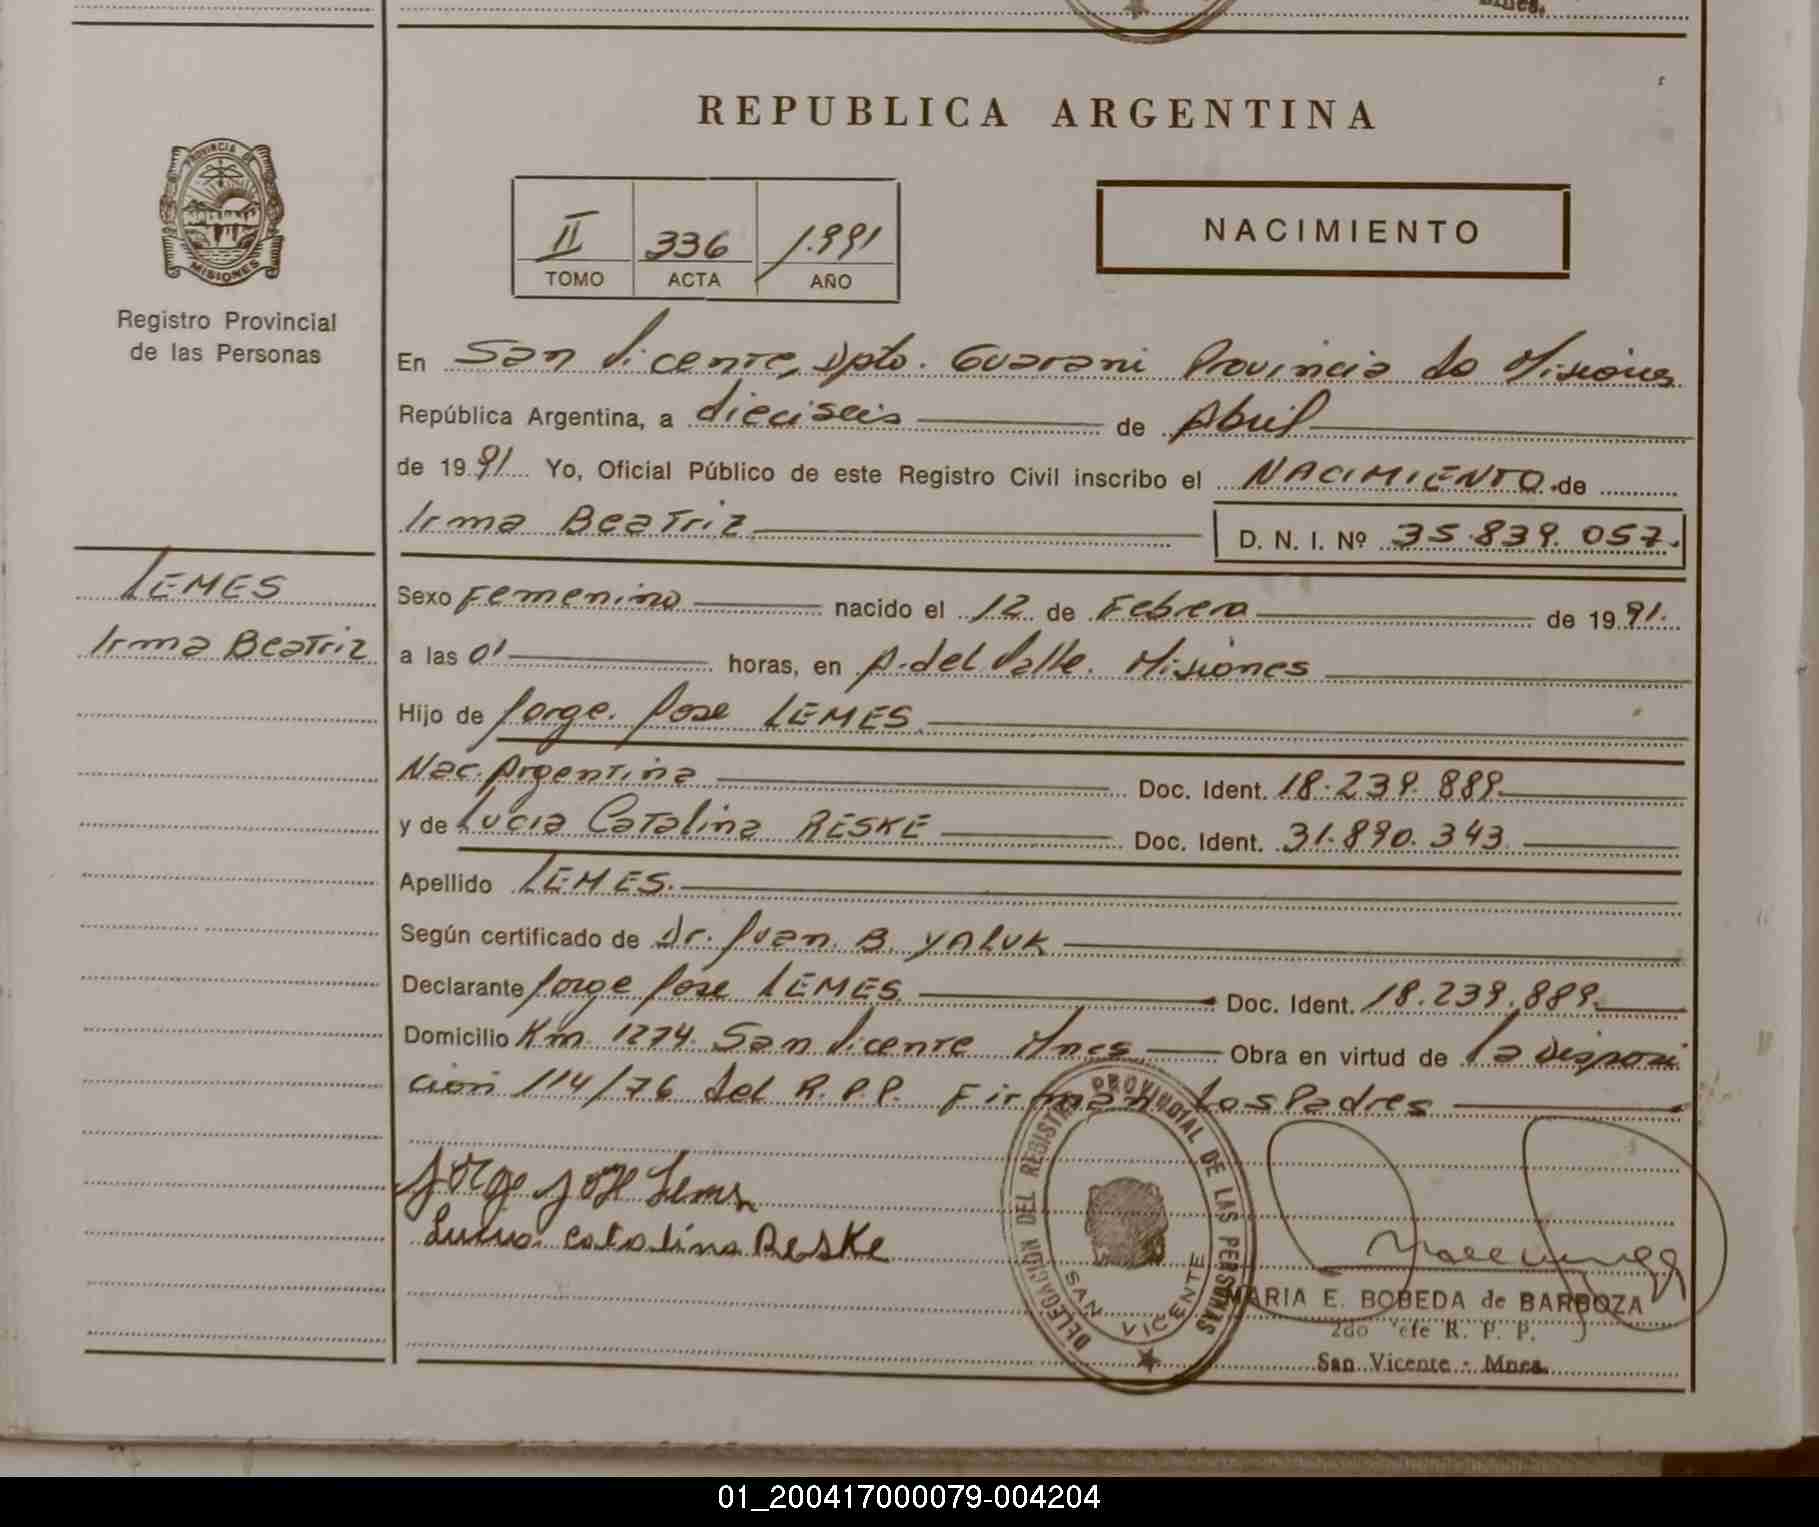 Mnes.
REPUBLICA ARGENTINA
PROVINCIA DE
MISIONES
Registro Provincial
de las Personas
II 336 1.991
TOMO ACTA AÑO
NACIMIENTO
En San Vicente, Dpto. Guarani Provincia de Misiones
República Argentina, a dieciseis de Abril
de 1991 Yo, Oficial Público de este Registro Civil inscribo el NACIMIENTO de
Irma Beatriz D. N. I. Nº 35.839.057.
LEMES
Irma Beatriz
Sexo Femenino nacido el 12 de Febrero de 1991.
a las 01 horas, en A. del Valle. Misiones
Hijo de Jorge. Jose LEMES
Nac. Argentina Doc. Ident. 18.239.889
y de Lucia Catalina RESKE Doc. Ident. 31.890.343
Apellido LEMES.
Según certificado de Dr. Juan B. YALUK
Declarante Jorge Jose LEMES Doc. Ident. 18.239.889.
Domicilio Km 1274 San Vicente Mnes Obra en virtud de la Disposi
cion 114/76 del R.P.P. Firman Los Padres
Jorge Jose Lemes
Lucia Catalina Reske
DELEGACION DEL REGISTRO PROVINCIAL DE LAS PERSONAS
SAN VICENTE
MARIA E. BOBEDA de BARBOZA
2do Jefe R. P. P.
San Vicente - Mnes.
01_200417000079-004204